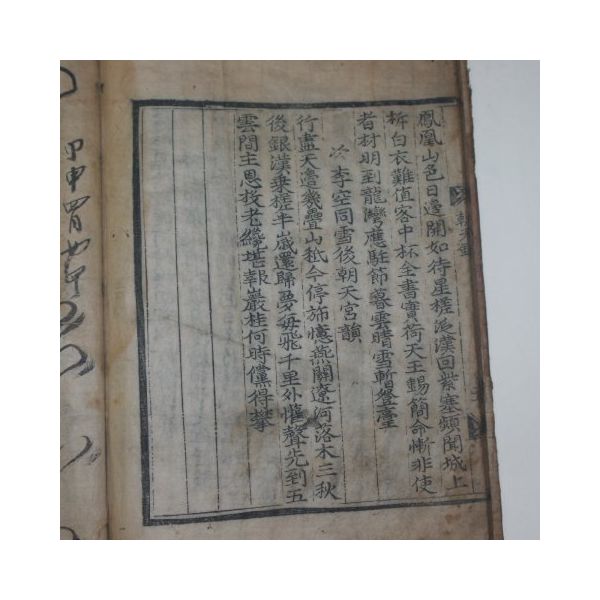 鳳凰山色日邊開如待星槎泛漢回紫塞頻聞城上
柝白衣難值客中杯全書寶荷天王賜簡命慚非使
者材明到龍灣應駐節暮雲晴雪暫登臺
次李空同雪後朝天宮韻
行盡天邉幾疊山秪今停斾憶燕關遼河落木三秋
後銀漢乗槎半嵗還歸夢每飛千里外懽聲先到五
雲間主恩投老纔堪報巖桂何時儻得攀
甲申